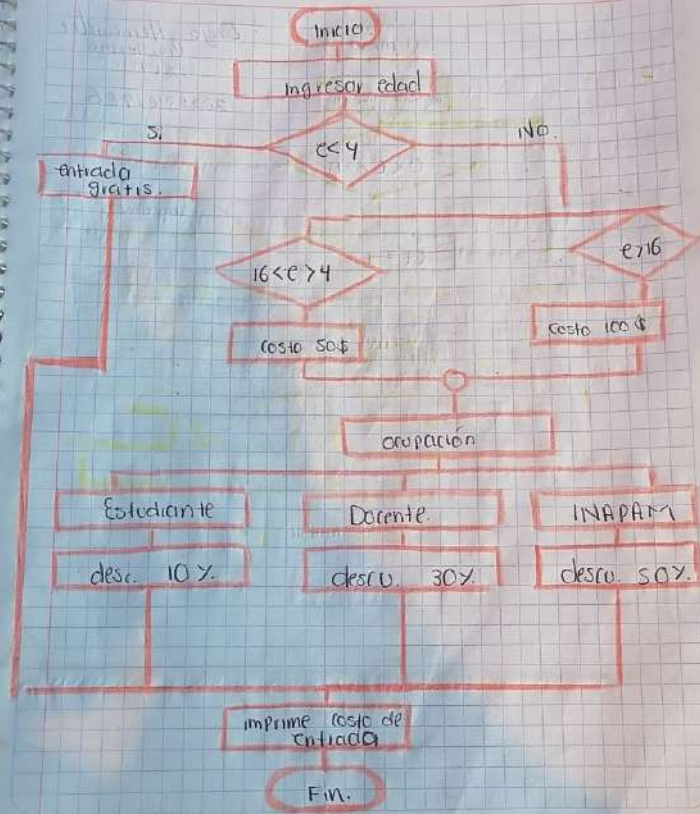 Inicio
ingresar edad
Si
e<4
NO.
entrada
gratis.
16<e>4
e>16
costo 50$
costo 100$
ocupación
Estudiante
Docente.
INAPAM
desc. 10%
descu. 30%.
descu. 50%.
imprime costo de
entrada
Fin.